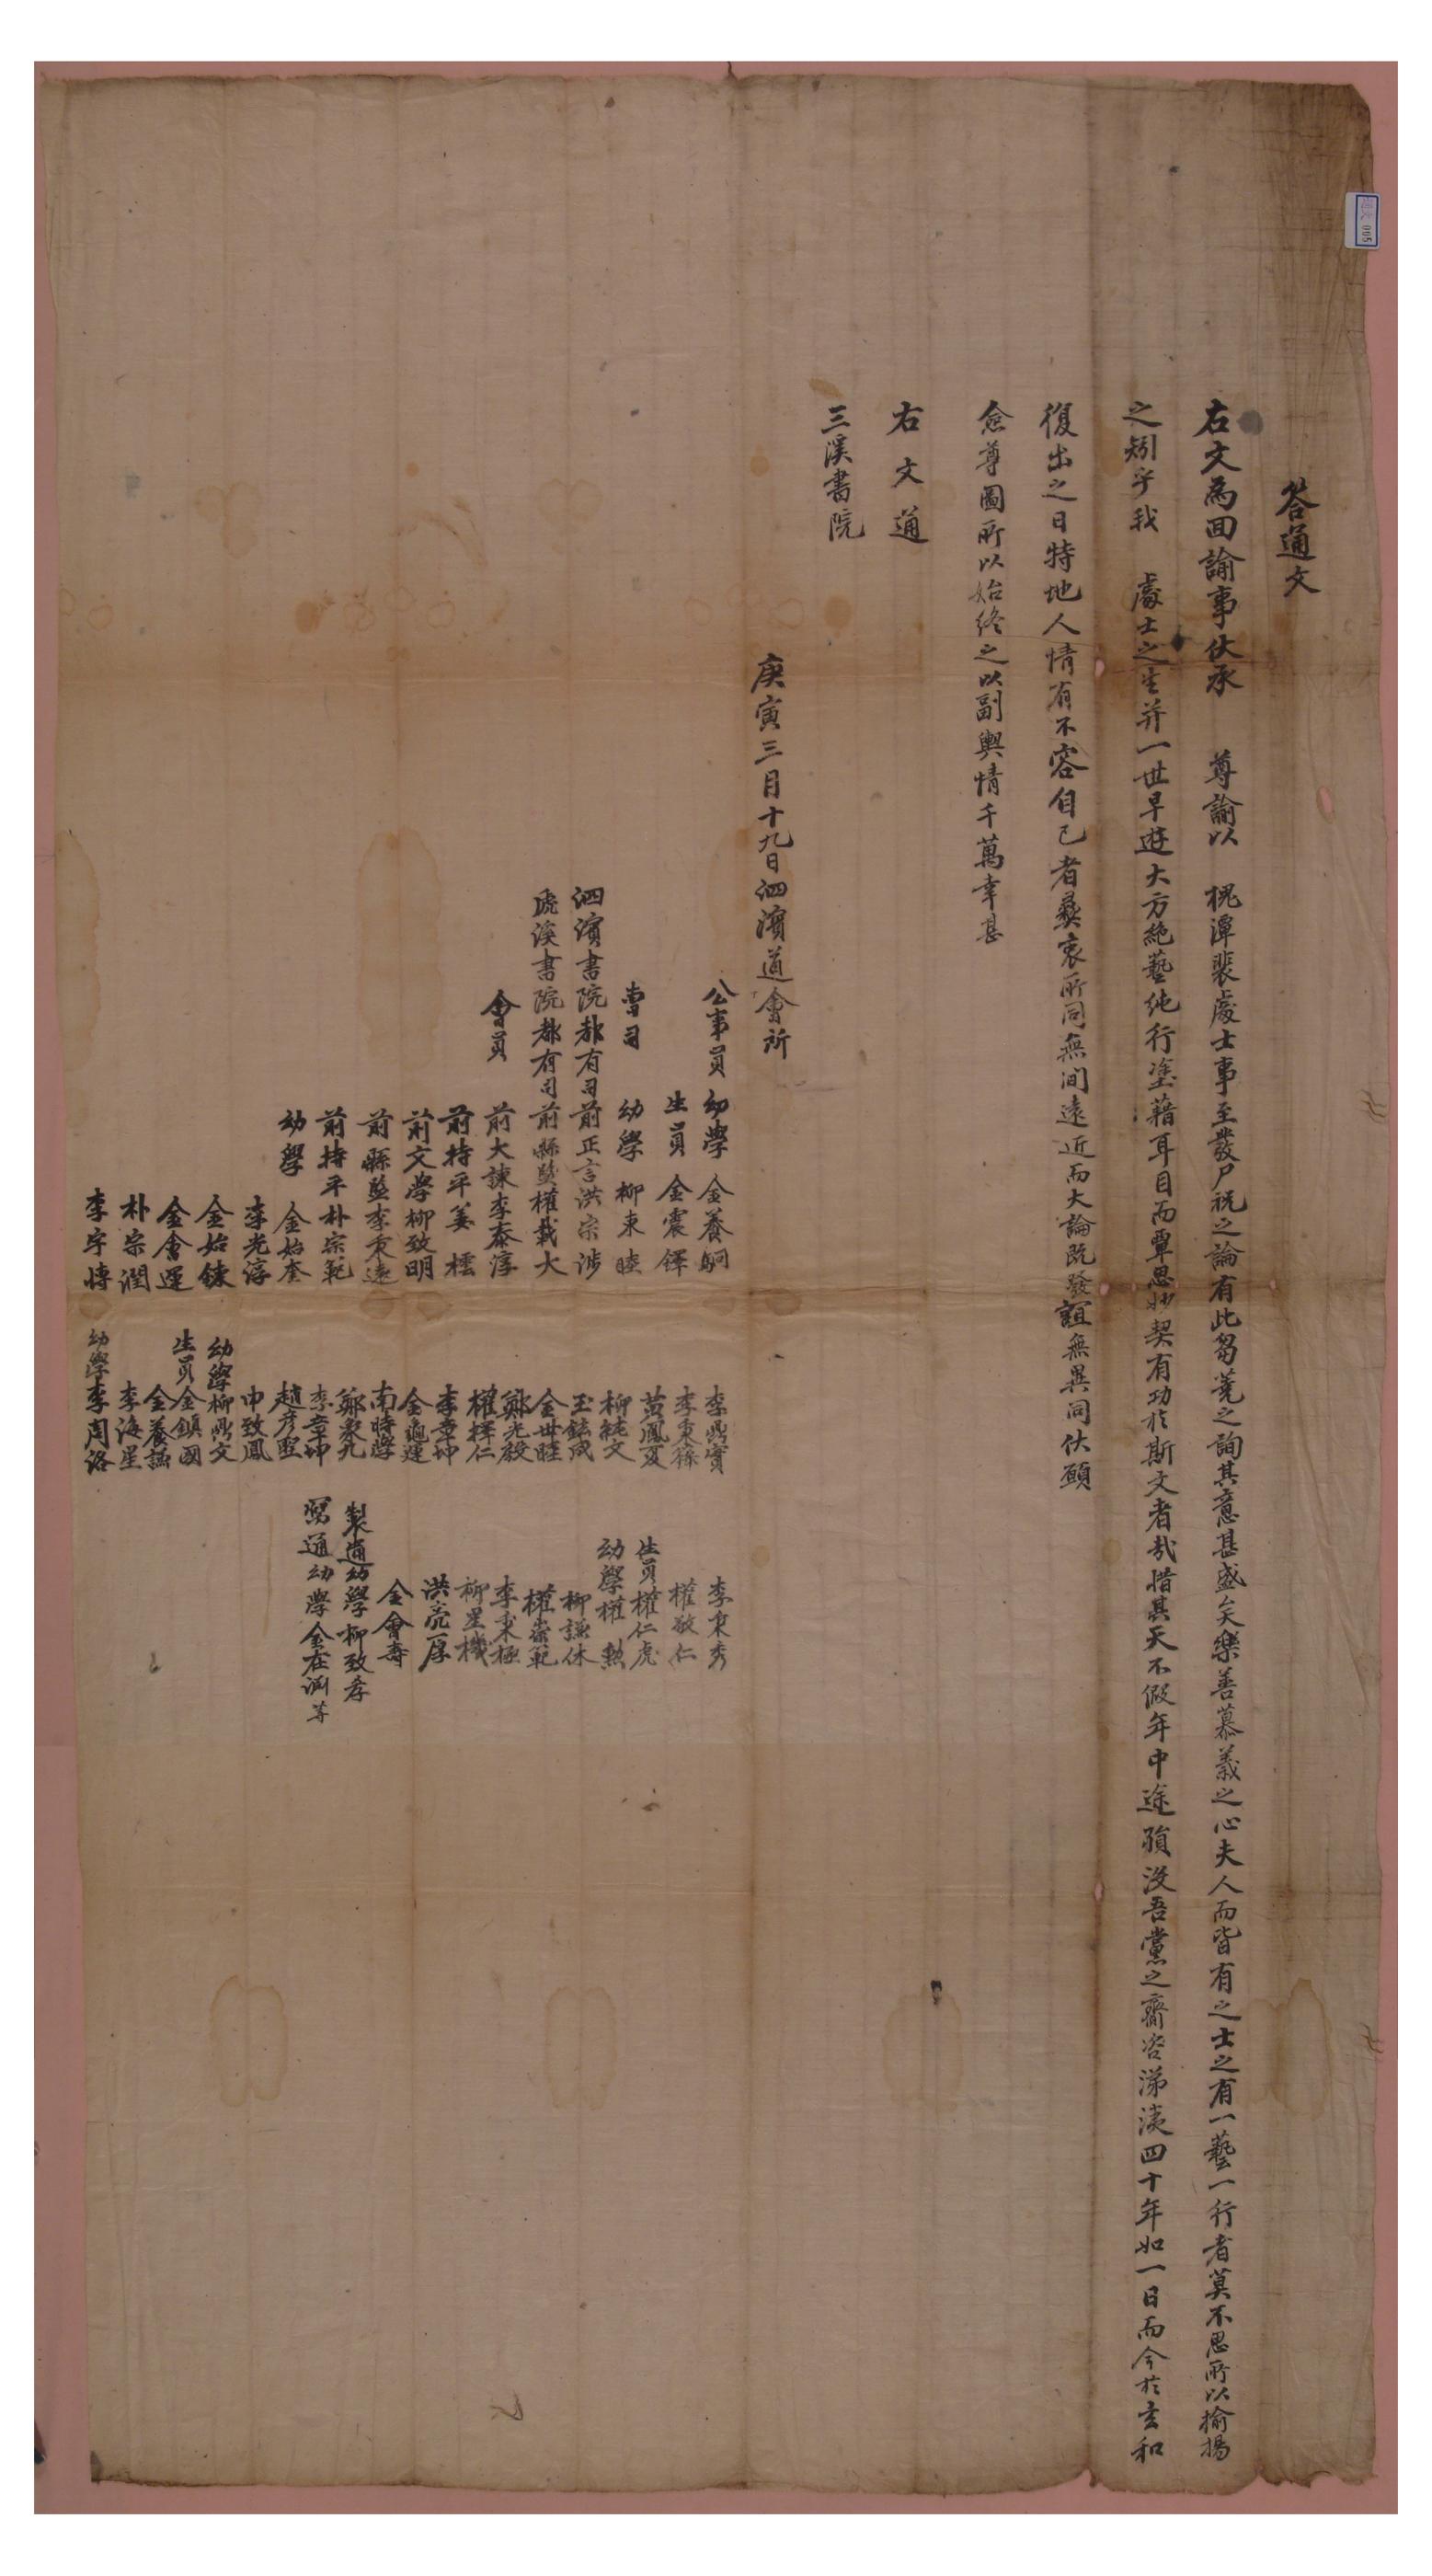 答通文
右文爲回諭事伏承 尊諭以 槐潭裴處士事至發尸祝之論有此芻蕘之詢其意甚盛矣樂善慕義之心夫人而皆有之士之有一藝一行者莫不思所以揄揚
之矧乎我 處士之生并一世早遊大方絶藝純行塗藉耳目而覃思妙契有功於斯文者哉惜其天不假年中途殞沒吾黨之齎咨涕洟四十年如一日而今於玄和
復出之日特地人情有不容自已者彝衷所同無間遠近而大論旣發誼無異同伏願
僉尊圖所以始終之以副輿情千萬幸甚
右文通
三溪書院
庚寅三月十九日泗濱道會所
公事員 幼學 金養
生員 金震鐸
曹司 幼學 柳東睦
泗濱書院都有司前正言洪宗涉
虎溪書院都有司前縣監權載大
會員 前大諫李泰淳
前持平姜橒
前文學柳致明
前縣監李秉遠
前持平朴宗範
幼學 金始奎
李光淳
金始鍊
金會運
朴宗潤
李宇慱
李鼎賓
李秉
黃鳳夏
柳純文
玉鉉成
金世睦
鄭光毅
權擇仁
李章坤
金運
南時學
鄭象九
李章坤
趙彦
申致鳳
幼學柳鼎文
生員金鎭國
金養
李海星
幼學李周洛
李秉秀
權敬仁
生員權仁虎
幼學權勲
柳謙休
權崇範
李秉極
柳星機
洪亮厚
金會壽
製通幼學柳致孝
寫通幼學金在淵等
通文 005